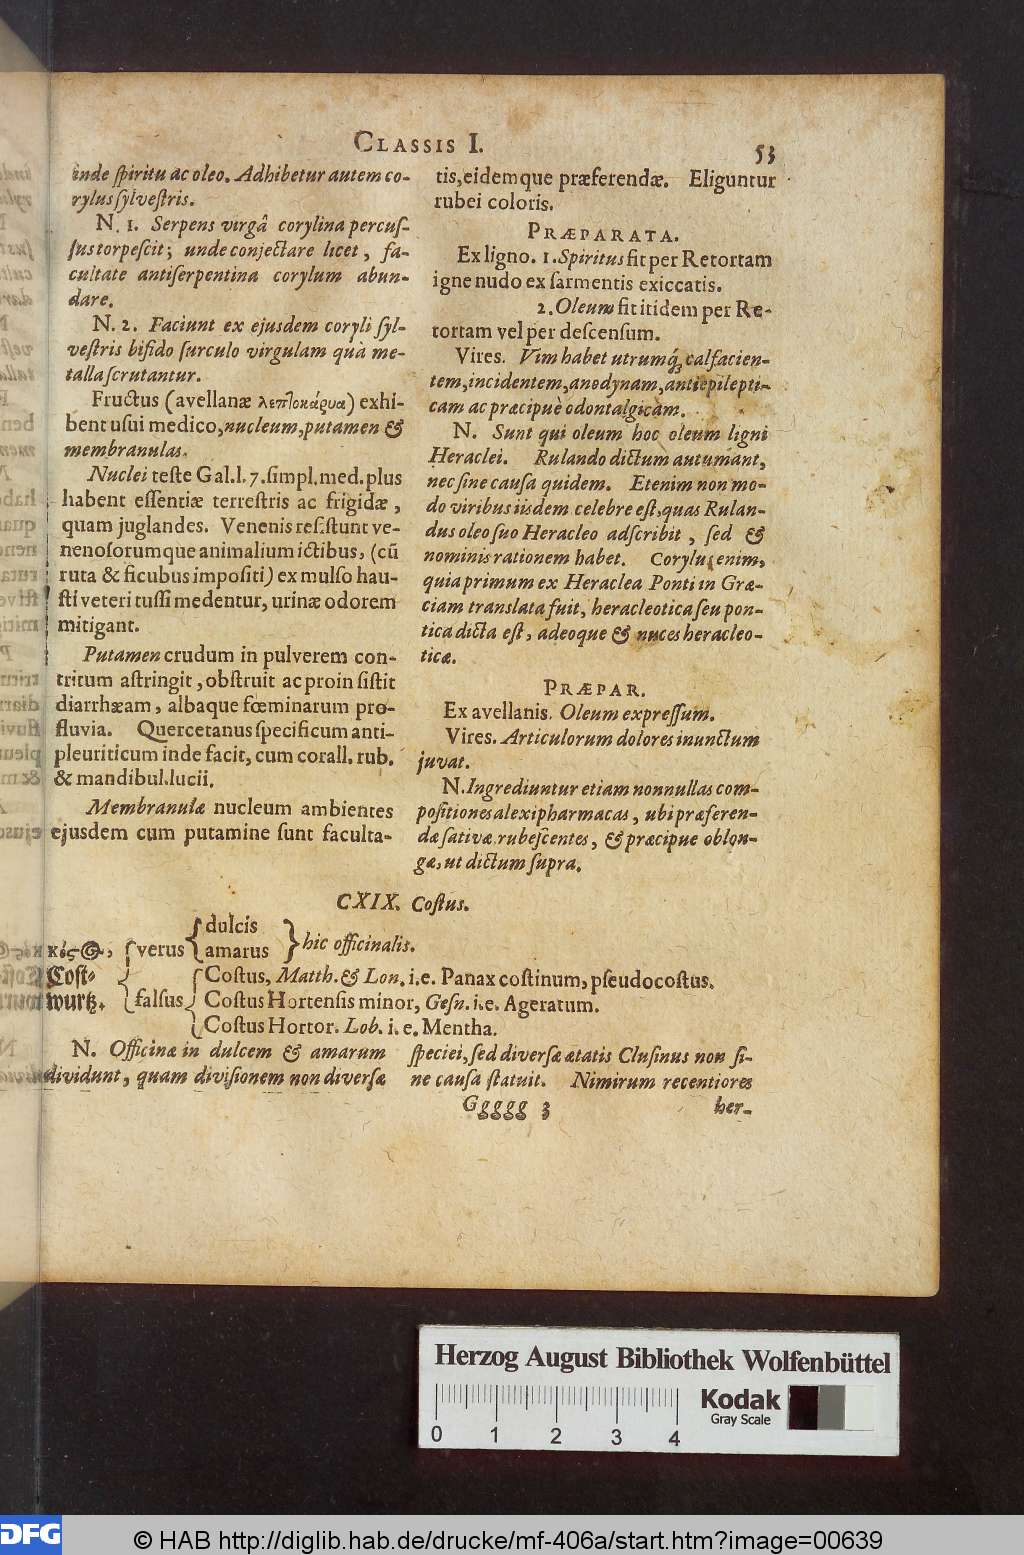 CLASSIS I.
53
inde ſpiritu ac oleo. Adhibetur autem co-
rylus ſylveſtris.
N. 1. Serpens virgâ corylina percuſ-
ſus torpeſcit; unde conjectare licet, fa-
cultate antiſerpentina corylum abun-
dare.
N. 2. Faciunt ex ejusdem coryli ſyl-
veſtris bifido ſurculo virgulam quâ me-
talla ſcrutantur.
Fructus (avellanæ λεπτοκάρυα) exhi-
bent uſui medico, nucleum, putamen &
membranulas.
Nuclei teſte Gal. l. 7. ſimpl. med. plus
habent eſſentiæ terreſtris ac frigidæ,
quam juglandes. Venenis reſiſtunt ve-
nenoſorumque animalium ictibus, (cū
ruta & ficubus impoſiti) ex mulſo hau-
ſti veteri tuſſi medentur, urinæ odorem
mitigant.
Putamen crudum in pulverem con-
tritum aſtringit, obſtruit ac proin ſiſtit
diarrhæam, albaque fœminarum pro-
fluvia. Quercetanus ſpecificum anti-
pleuriticum inde facit, cum corall. rub.
& mandibul. lucii.
Membranulæ nucleum ambientes
ejusdem cum putamine ſunt faculta-
tis, eidemque præferendæ. Eliguntur
rubei coloris.
PRÆPARATA.
Ex ligno. 1. Spiritus fit per Retortam
igne nudo ex ſarmentis exiccatis.
2. Oleum fit itidem per Re-
tortam vel per deſcenſum.
Vires. Vim habet utrumq́; calfacien-
tem, incidentem, anodynam, antiepilepti-
cam ac præcipuè odontalgicam.
N. Sunt qui oleum hoc oleum ligni
Heraclei. Rulando dictum autumant,
nec ſine cauſa quidem. Etenim non mo-
do viribus iisdem celebre eſt, quas Rulan-
dus oleo ſuo Heracleo adſcribit, ſed &
nominis rationem habet. Corylus enim,
quia primum ex Heraclea Ponti in Græ-
ciam translata fuit, heracleotica ſeu pon-
tica dicta eſt, adeoque & nuces heracleo-
ticæ.
PRÆPAR.
Ex avellanis. Oleum expreſſum.
Vires. Articulorum dolores inunctum
juvat.
N. Ingrediuntur etiam nonnullas com-
poſitiones alexipharmacas, ubi præferen-
dæ ſativæ rubeſcentes, & præcipue oblon-
gæ, ut dictum ſupra.
CXIX. Coſtus.
κόςος,
Coſt-
wurtz.
verus
dulcis
amarus
hic officinalis.
falſus
Coſtus, Matth. & Lon. i.e. Panax coſtinum, pſeudocoſtus.
Coſtus Hortenſis minor, Geſn. i.e. Ageratum.
Coſtus Hortor. Lob. i.e. Mentha.
N. Officinæ in dulcem & amarum
dividunt, quam diviſionem non diverſæ
ſpeciei, ſed diverſæ ætatis Cluſinus non ſi-
ne cauſa ſtatuit. Nimirum recentiores
Ggggg 3
her-
Herzog August Bibliothek Wolfenbüttel
Kodak
Gray Scale
0 1 2 3 4
DFG
© HAB http://diglib.hab.de/drucke/mf-406a/start.htm?image=00639